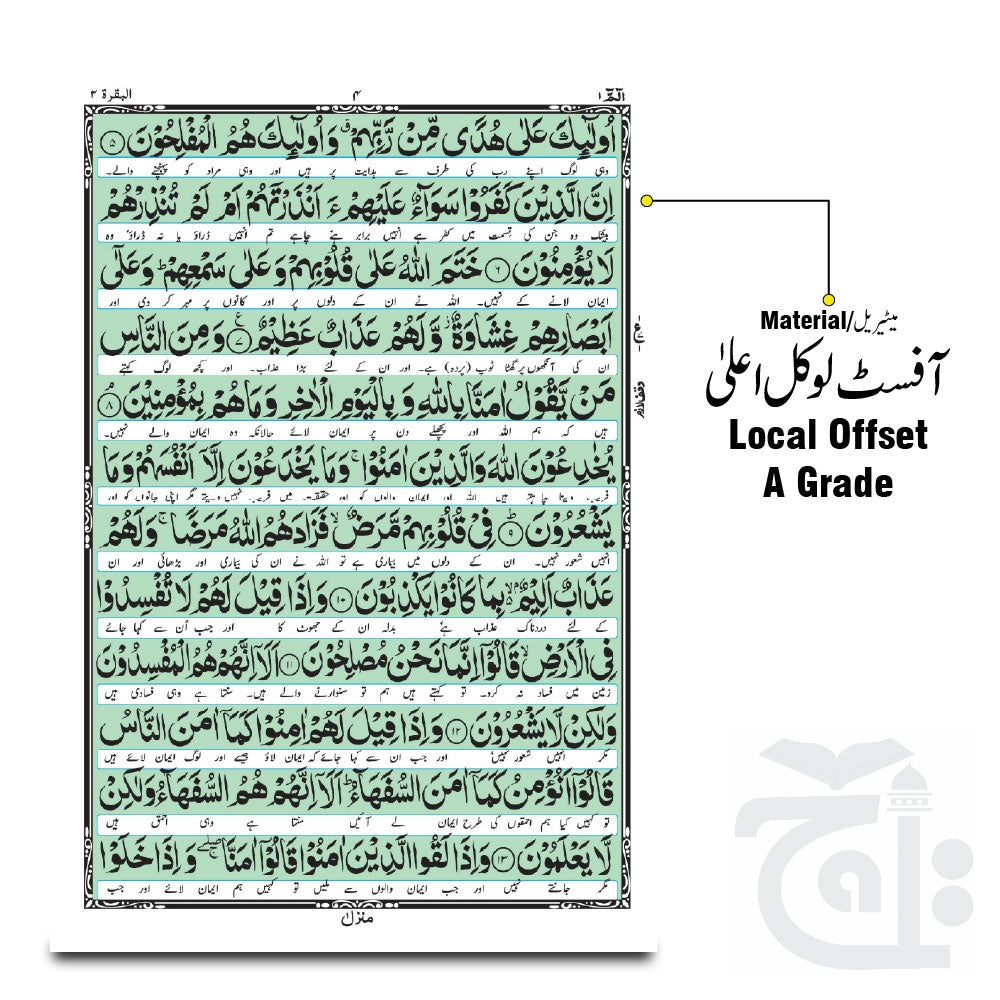 الٓمّٓ ١ ۴ البقرة ٢
اُولٰٓئِكَ عَلٰى هُدًى مِّنْ رَّبِّهِمْ ۗ وَاُولٰٓئِكَ هُمُ الْمُفْلِحُوْنَ ۵
وہی لوگ اپنے رب کی طرف سے ہدایت پر ہیں اور وہی مراد کو پہنچنے والے۔
اِنَّ الَّذِيْنَ كَفَرُوْا سَوَآءٌ عَلَيْهِمْ ءَاَنْذَرْتَهُمْ اَمْ لَمْ تُنْذِرْهُمْ
بیشک وہ جن کی قسمت میں کفر ہے انہیں برابر ہے چاہے تم انہیں ڈراؤ یا نہ ڈراؤ وہ
لَا يُؤْمِنُوْنَ ۶ خَتَمَ اللّٰهُ عَلٰى قُلُوْبِهِمْ وَعَلٰى سَمْعِهِمْ ۖ وَعَلٰٓى
ایمان لانے کے نہیں۔ اللہ نے ان کے دلوں پر اور کانوں پر مہر کر دی اور
اَبْصَارِهِمْ غِشَاوَةٌ ۫ وَّلَهُمْ عَذَابٌ عَظِيْمٌ ۷ وَمِنَ النَّاسِ
ان کی آنکھوں پر گھٹا ٹوپ (پردہ) ہے۔ اور ان کے لئے بڑا عذاب۔ اور کچھ لوگ کہتے
مَنْ يَّقُوْلُ اٰمَنَّا بِاللّٰهِ وَبِالْيَوْمِ الْاٰخِرِ وَمَا هُمْ بِمُؤْمِنِيْنَ ۸
ہیں کہ ہم اللہ اور پچھلے دن پر ایمان لائے حالانکہ وہ ایمان والے نہیں۔
يُخٰدِعُوْنَ اللّٰهَ وَالَّذِيْنَ اٰمَنُوْا ۚ وَمَا يَخْدَعُوْنَ اِلَّآ اَنْفُسَهُمْ وَمَا
فریب دینا چاہتے ہیں اللہ اور ایمان والوں کو اور حقیقت میں فریب نہیں دیتے مگر اپنی جانوں کو اور
يَشْعُرُوْنَ ۹ فِيْ قُلُوْبِهِمْ مَّرَضٌ ۙ فَزَادَهُمُ اللّٰهُ مَرَضًا ۚ وَلَهُمْ
انہیں شعور نہیں۔ ان کے دلوں میں بیماری ہے تو اللہ نے ان کی بیماری اور بڑھائی اور ان
عَذَابٌ اَلِيْمٌ ۢ بِمَا كَانُوْا يَكْذِبُوْنَ ۱۰ وَاِذَا قِيْلَ لَهُمْ لَا تُفْسِدُوْا
کے لئے دردناک عذاب ہے بدلہ ان کے جھوٹ کا اور جب اُن سے کہا جائے
فِي الْاَرْضِ ۙ قَالُوْٓا اِنَّمَا نَحْنُ مُصْلِحُوْنَ ۱۱ اَلَآ اِنَّهُمْ هُمُ الْمُفْسِدُوْنَ
زمین میں فساد نہ کرو۔ تو کہتے ہیں ہم تو سنوارنے والے ہیں۔ سنتا ہے وہی فسادی ہیں
وَلٰكِنْ لَّا يَشْعُرُوْنَ ۱۲ وَاِذَا قِيْلَ لَهُمْ اٰمِنُوْا كَمَآ اٰمَنَ النَّاسُ
مگر انہیں شعور نہیں اور جب ان سے کہا جائے کہ ایمان لاؤ جیسے اور لوگ ایمان لائے ہیں
قَالُوْٓا اَنُؤْمِنُ كَمَآ اٰمَنَ السُّفَهَآءُ ۗ اَلَآ اِنَّهُمْ هُمُ السُّفَهَآءُ وَلٰكِنْ
تو کہیں کیا ہم احمقوں کی طرح ایمان لے آئیں سنتا ہے وہی احمق ہیں
لَّا يَعْلَمُوْنَ ۱۳ وَاِذَا لَقُوا الَّذِيْنَ اٰمَنُوْا قَالُوْٓا اٰمَنَّا ۖۚ وَاِذَا خَلَوْا
مگر جانتے نہیں اور جب ایمان والوں سے ملیں تو کہیں ہم ایمان لائے اور جب
منزل ۱
وقف لازم
Material/میٹیریل
آفسٹ لوکل اعلیٰ
Local Offset
A Grade